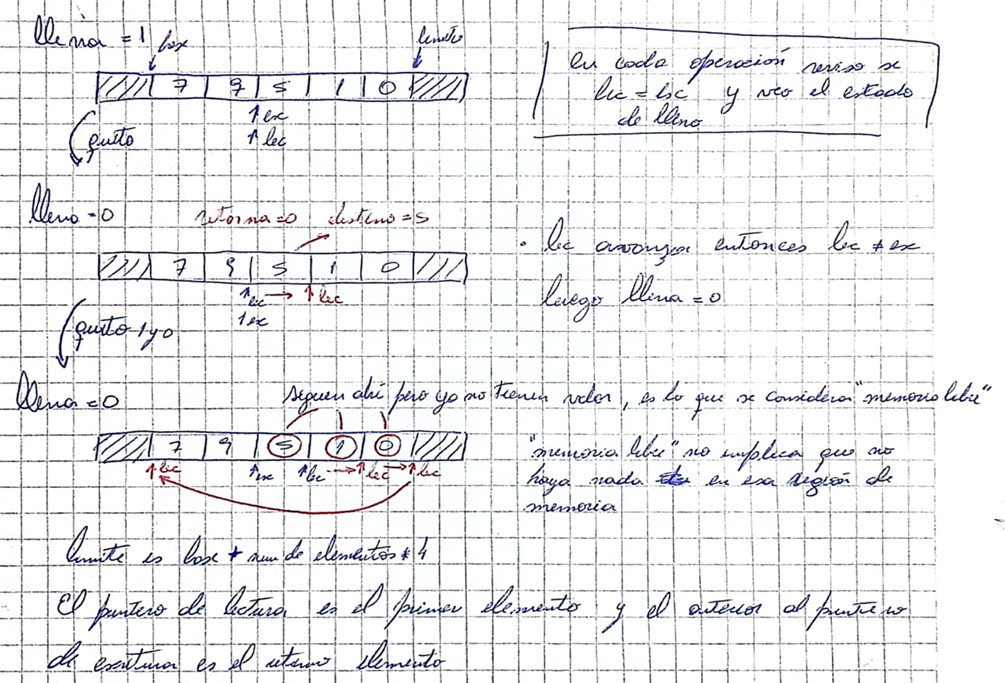 llena = 1
base
limite
7 9 5 1 0
↑ esc
↑ lec
quito
en cada operación reviso si
lec = esc y veo el estado
de lleno
lleno = 0
retorna = 0 destino = 5
7 9 5 1 0
↑ lec → ↑ lec
↑ esc
· lec avanza entonces lec ≠ esc
luego llena = 0
quito 1 y 0
llena = 0
siguen ahí pero ya no tienen valor, es lo que se considera "memoria libre"
7 9 5 1 0
↑ lec ↑ esc ↑ lec → ↑ lec → ↑ lec
"memoria libre" no implica que no
haya nada en esa región de
memoria
limite es base + num de elementos * 4
El puntero de lectura es el primer elemento y el anterior al puntero
de escritura es el último elemento